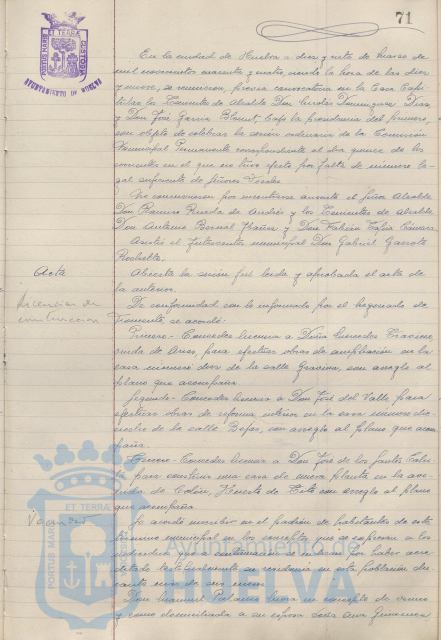 71
PORTUS MARIS ET TERRAE CUSTODIA
AYUNTAMIENTO DE HUELVA
En la ciudad de Huelva a diez y siete de Marzo de
mil novecientos cuarenta y cuatro, siendo la hora de las diez
y nueve, se reunieron, previa convocatoria en la Casa Capi-
tular los Tenientes de Alcalde Don Nicolás Domínguez Díaz
y Don José García, bajo la presidencia del primero,
con objeto de celebrar la sesión ordinaria de la Comisión
Municipal Permanente correspondiente al día quince de los
corrientes en el que no tuvo efecto por falta de número le-
gal suficiente de Señores Vocales.
No concurrieron por encontrarse ausente el Señor Alcalde
Don Ramiro Rueda de Andrés y los Tenientes de Alcalde
Don Antonio Bernal Ibáñez y Don Fabián
Asistió el Interventor municipal Don Gabriel Garrote
Acta
Abierta la sesión fué leída y aprobada el acta de
la anterior.
Licencias de
construccion
De conformidad con lo informado por el Negociado de
Fomento, se acordó:
Primero - Conceder licencia a Doña Mercedes
viuda de para efectuar obras de ampliación en la
casa número dos de la calle Gravina, con arreglo al
plano que acompaña.
Segundo - Conceder licencia a Don José del Valle para
efectuar obras de reforma interior en la casa número die-
ciocho de la calle Béjar, con arreglo al plano que acom-
paña.
Tercero - Conceder licencia a Don José de los Santos
para construir una casa de una planta en la ave-
nida de Colón, Huerto de con arreglo al plano
que acompaña
Se acordó inscribir en el padrón de habitantes de este
término municipal en los conceptos que se expresan a los
individuos que a continuación se indican por haber acre-
ditado su residencia en esta población du-
rante más de seis meses
Don Manuel Palacios en concepto de vecino
y como domiciliada a su esposa Ana
PORTUS MARIS ET TERRAE
Ayuntamiento de
HUELVA